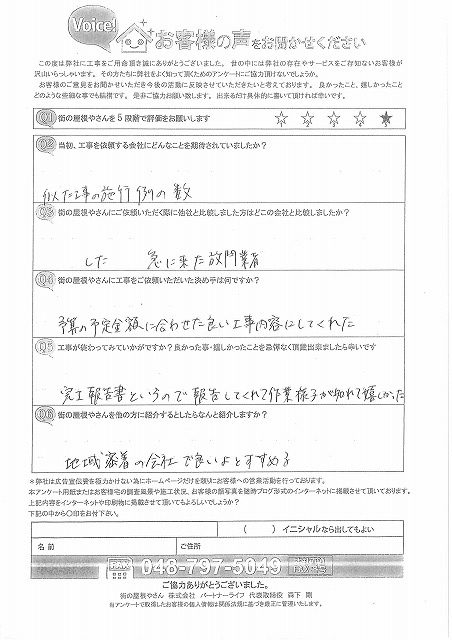 Voice!
お客様の声をお聞かせください
この度は弊社に工事をご用命頂き誠にありがとうございました。世の中には弊社の存在やサービスをご存知ないお客様が
沢山いらっしゃいます。その方たちに弊社をよく知って頂くためのアンケートにご協力頂けないでしょうか。
お客様のご意見をお聞かせいただき今後の活動に反映させていただきたいと考えております。良かったこと、嬉しかったこと
どのような些細な事でも結構です。是非ご協力お願い致します。出来るだけ具体的に書いて頂ければ幸いです。
Q1 街の屋根やさんを5段階で評価をお願いします
1 2 3 4 5
Q2 当初、工事を依頼する会社にどんなことを期待されていましたか?
似た工事の施行例の数
Q3 街の屋根やさんにご依頼いただく際に他社と比較しました方はどこの会社と比較しましたか?
した 急に来た放門業者
Q4 街の屋根やさんに工事をご依頼いただいた決め手は何ですか?
予算の予定金額に合わせた良い工事内容にしてくれた
Q5 工事が終わってみていかがですか?良かった事・嬉しかったことを忌憚なく頂戴出来ましたら幸いです
完工報告書というので報告してくれて作業様子が知れて嬉しかった
Q6 街の屋根やさんを他の方に紹介するとしたらなんと紹介しますか?
地域密着の会社で良いよとすすめる
※弊社は広告宣伝費を極力かけない為にホームページだけを頼りにお客様への営業活動を行っております。
本アンケート用紙またはお客様宅の調査風景や施工状況、お客様の顔写真を随時ブログ形式のインターネットに掲載させて頂いております。
上記内容をインターネットや印刷物に掲載させて頂いてもよろしいでしょうか?
下記の中から○印をお付け下さい。
( ) イニシャルなら出してもよい
名前 ご住所
FAX 048-797-5049
ご協力ありがとうございました。
街の屋根やさん 株式会社 パートナーライフ 代表取締役 森下 剛
当アンケートで取得したお客様の個人情報は関係法規に基づき厳正に管理いたします。